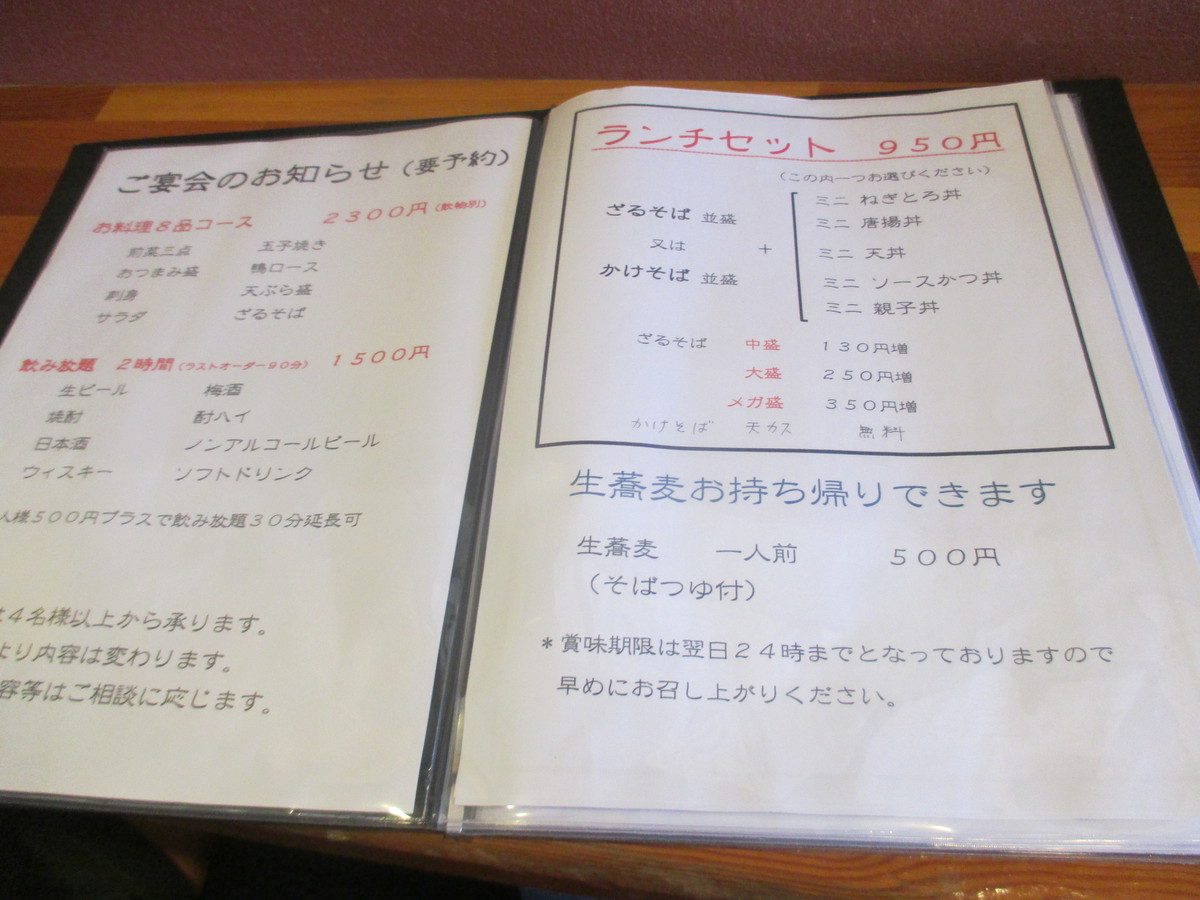 ご宴会のお知らせ（要予約）
お料理８品コース　２３００円（飲物別）
前菜三点　玉子焼き
おつまみ盛　鴨ロース
刺身　天ぷら盛
サラダ　ざるそば
飲み放題　２時間（ラストオーダー９０分）　１５００円
生ビール　梅酒
焼酎　酎ハイ
日本酒　ノンアルコールビール
ウィスキー　ソフトドリンク
人様５００円プラスで飲み放題３０分延長可
は４名様以上から承ります。
より内容は変わります。
容等はご相談に応じます。
ランチセット　９５０円
（この内一つお選びください）
ざるそば 並盛
又は
かけそば 並盛
＋
ミニ ねぎとろ丼
ミニ 唐揚丼
ミニ 天丼
ミニ ソースかつ丼
ミニ 親子丼
ざるそば　中盛　１３０円増
大盛　２５０円増
メガ盛　３５０円増
かけそば　天カス　無料
生蕎麦お持ち帰りできます
生蕎麦　一人前　５００円
（そばつゆ付）
＊賞味期限は翌日２４時までとなっておりますので
早めにお召し上がりください。